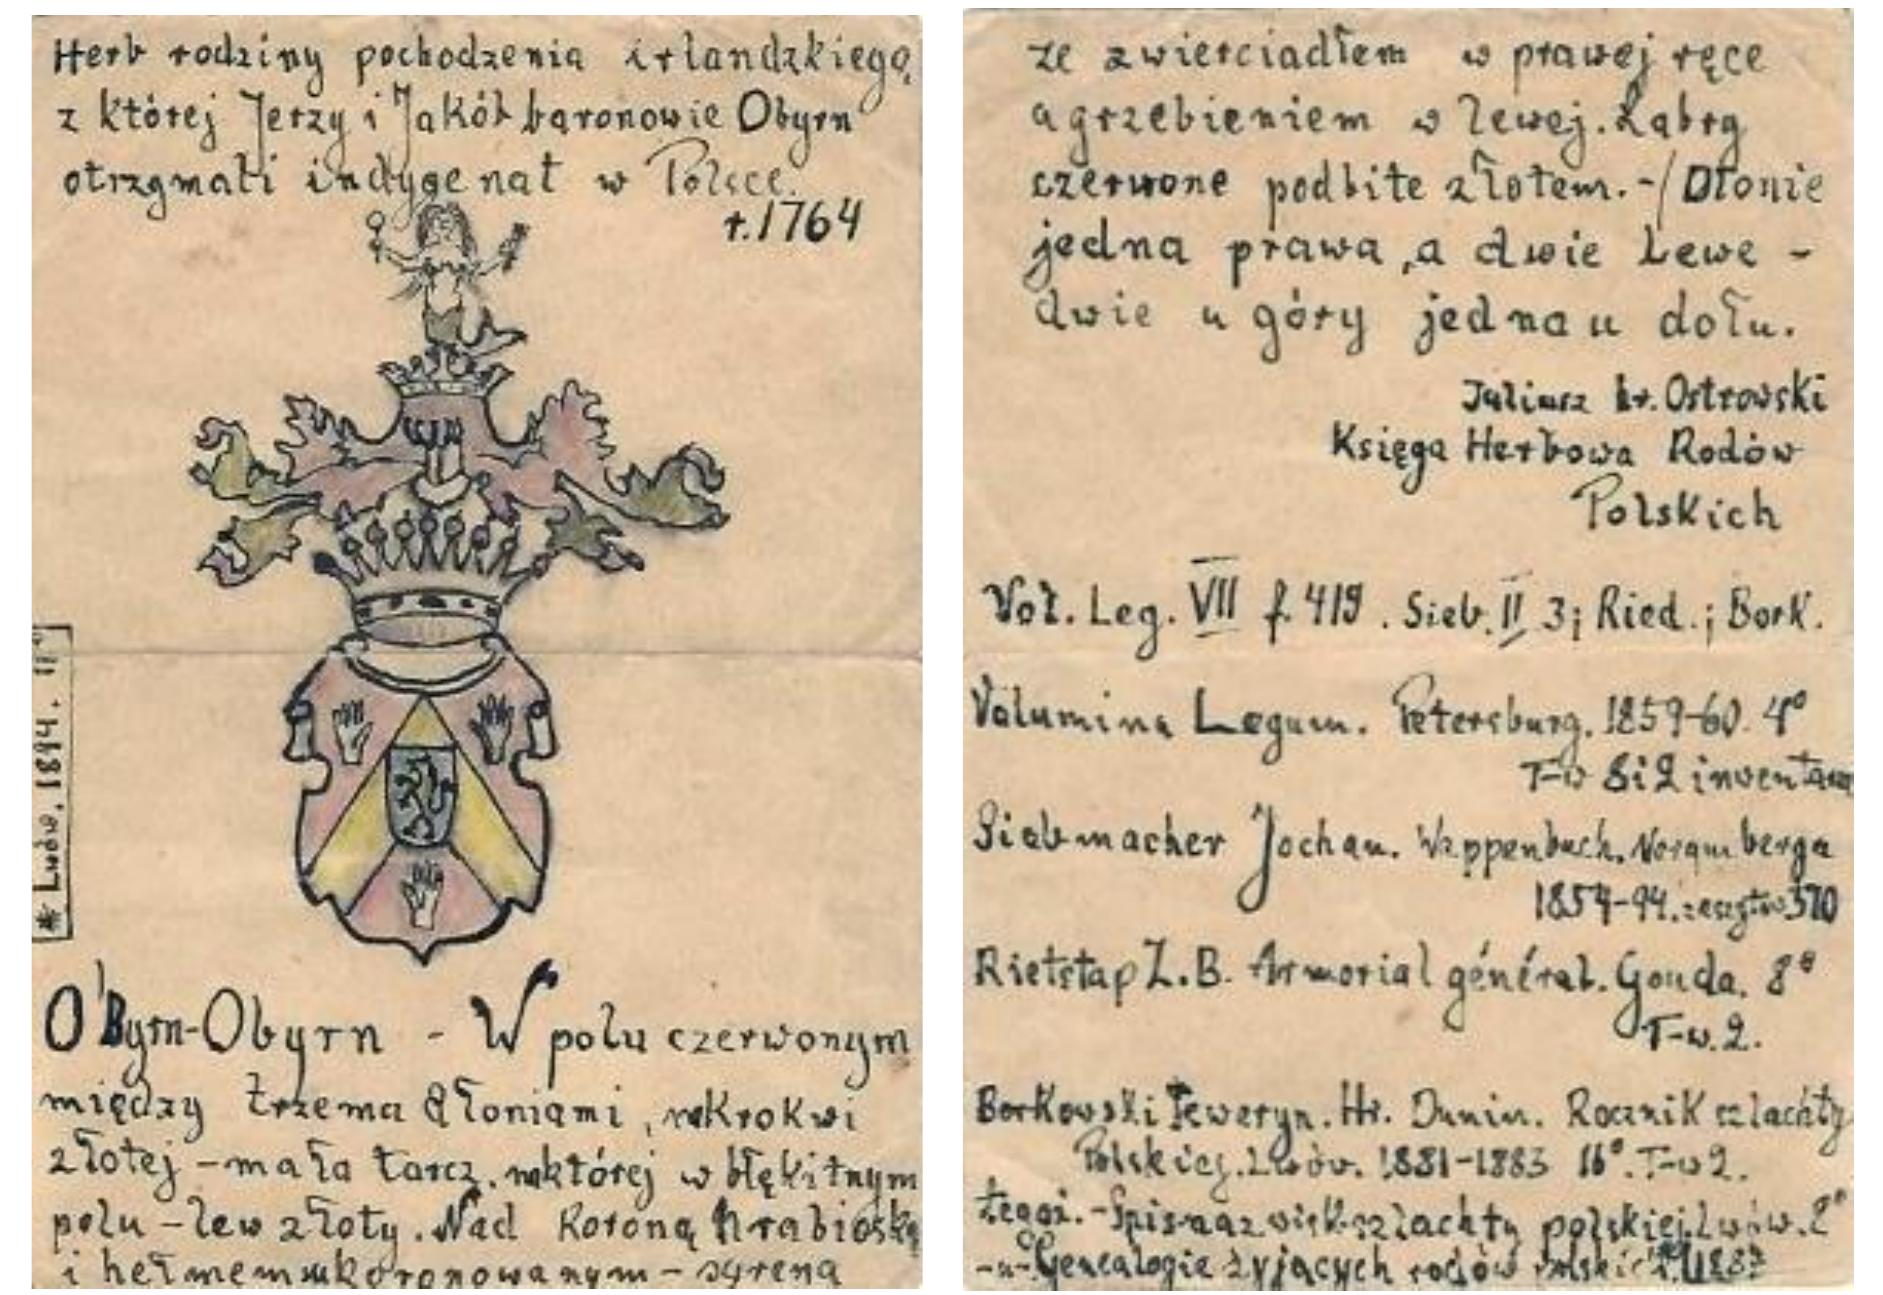 Herb rodziny pochodzenia irlandzkiego,
z której Jerzy i Jakób baronowie Obyrn
otrzymali indygenat w Polsce.
r. 1764
* Lwów. 1894. II
O'Byrn-Obyrn - W polu czerwonym
między trzema dłoniami, w krokwi
złotej - mała tarcz, w której w błękitnym
polu - lew złoty. Nad koroną hrabioską
i hełmem ukoronowanym - syrena
ze zwierciadłem w prawej ręce
a grzebieniem w lewej. Łabry
czerwone podbite złotem. - / Dłonie
jedna prawa, a dwie lewe -
dwie u góry jedna u dołu.
Juliusz hr. Ostrowski
Księga Herbowa Rodów
Polskich
Vol. Leg. VII f. 419. Sieb. II 3; Ried.; Bork.
Volumina Legum. Petersburg. 1859-60. 4°
T-w 8 i 2 inwentarza
Siebmacher Jochan. Wappenbuch. Noramberga
1854-94. zeszytów 370
Rietstap Z.B. Armorial général. Gouda. 8°
T-w. 2.
Borkowski Seweryn. Hr. Dunin. Rocznik szlachty
Polskiej. Lwów. 1881-1883 16°. T-w 2.
Tegoż. - Spis nazwisk szlachty polskiej. Lwów. 8°
-"- Genealogie żyjących rodów polskich